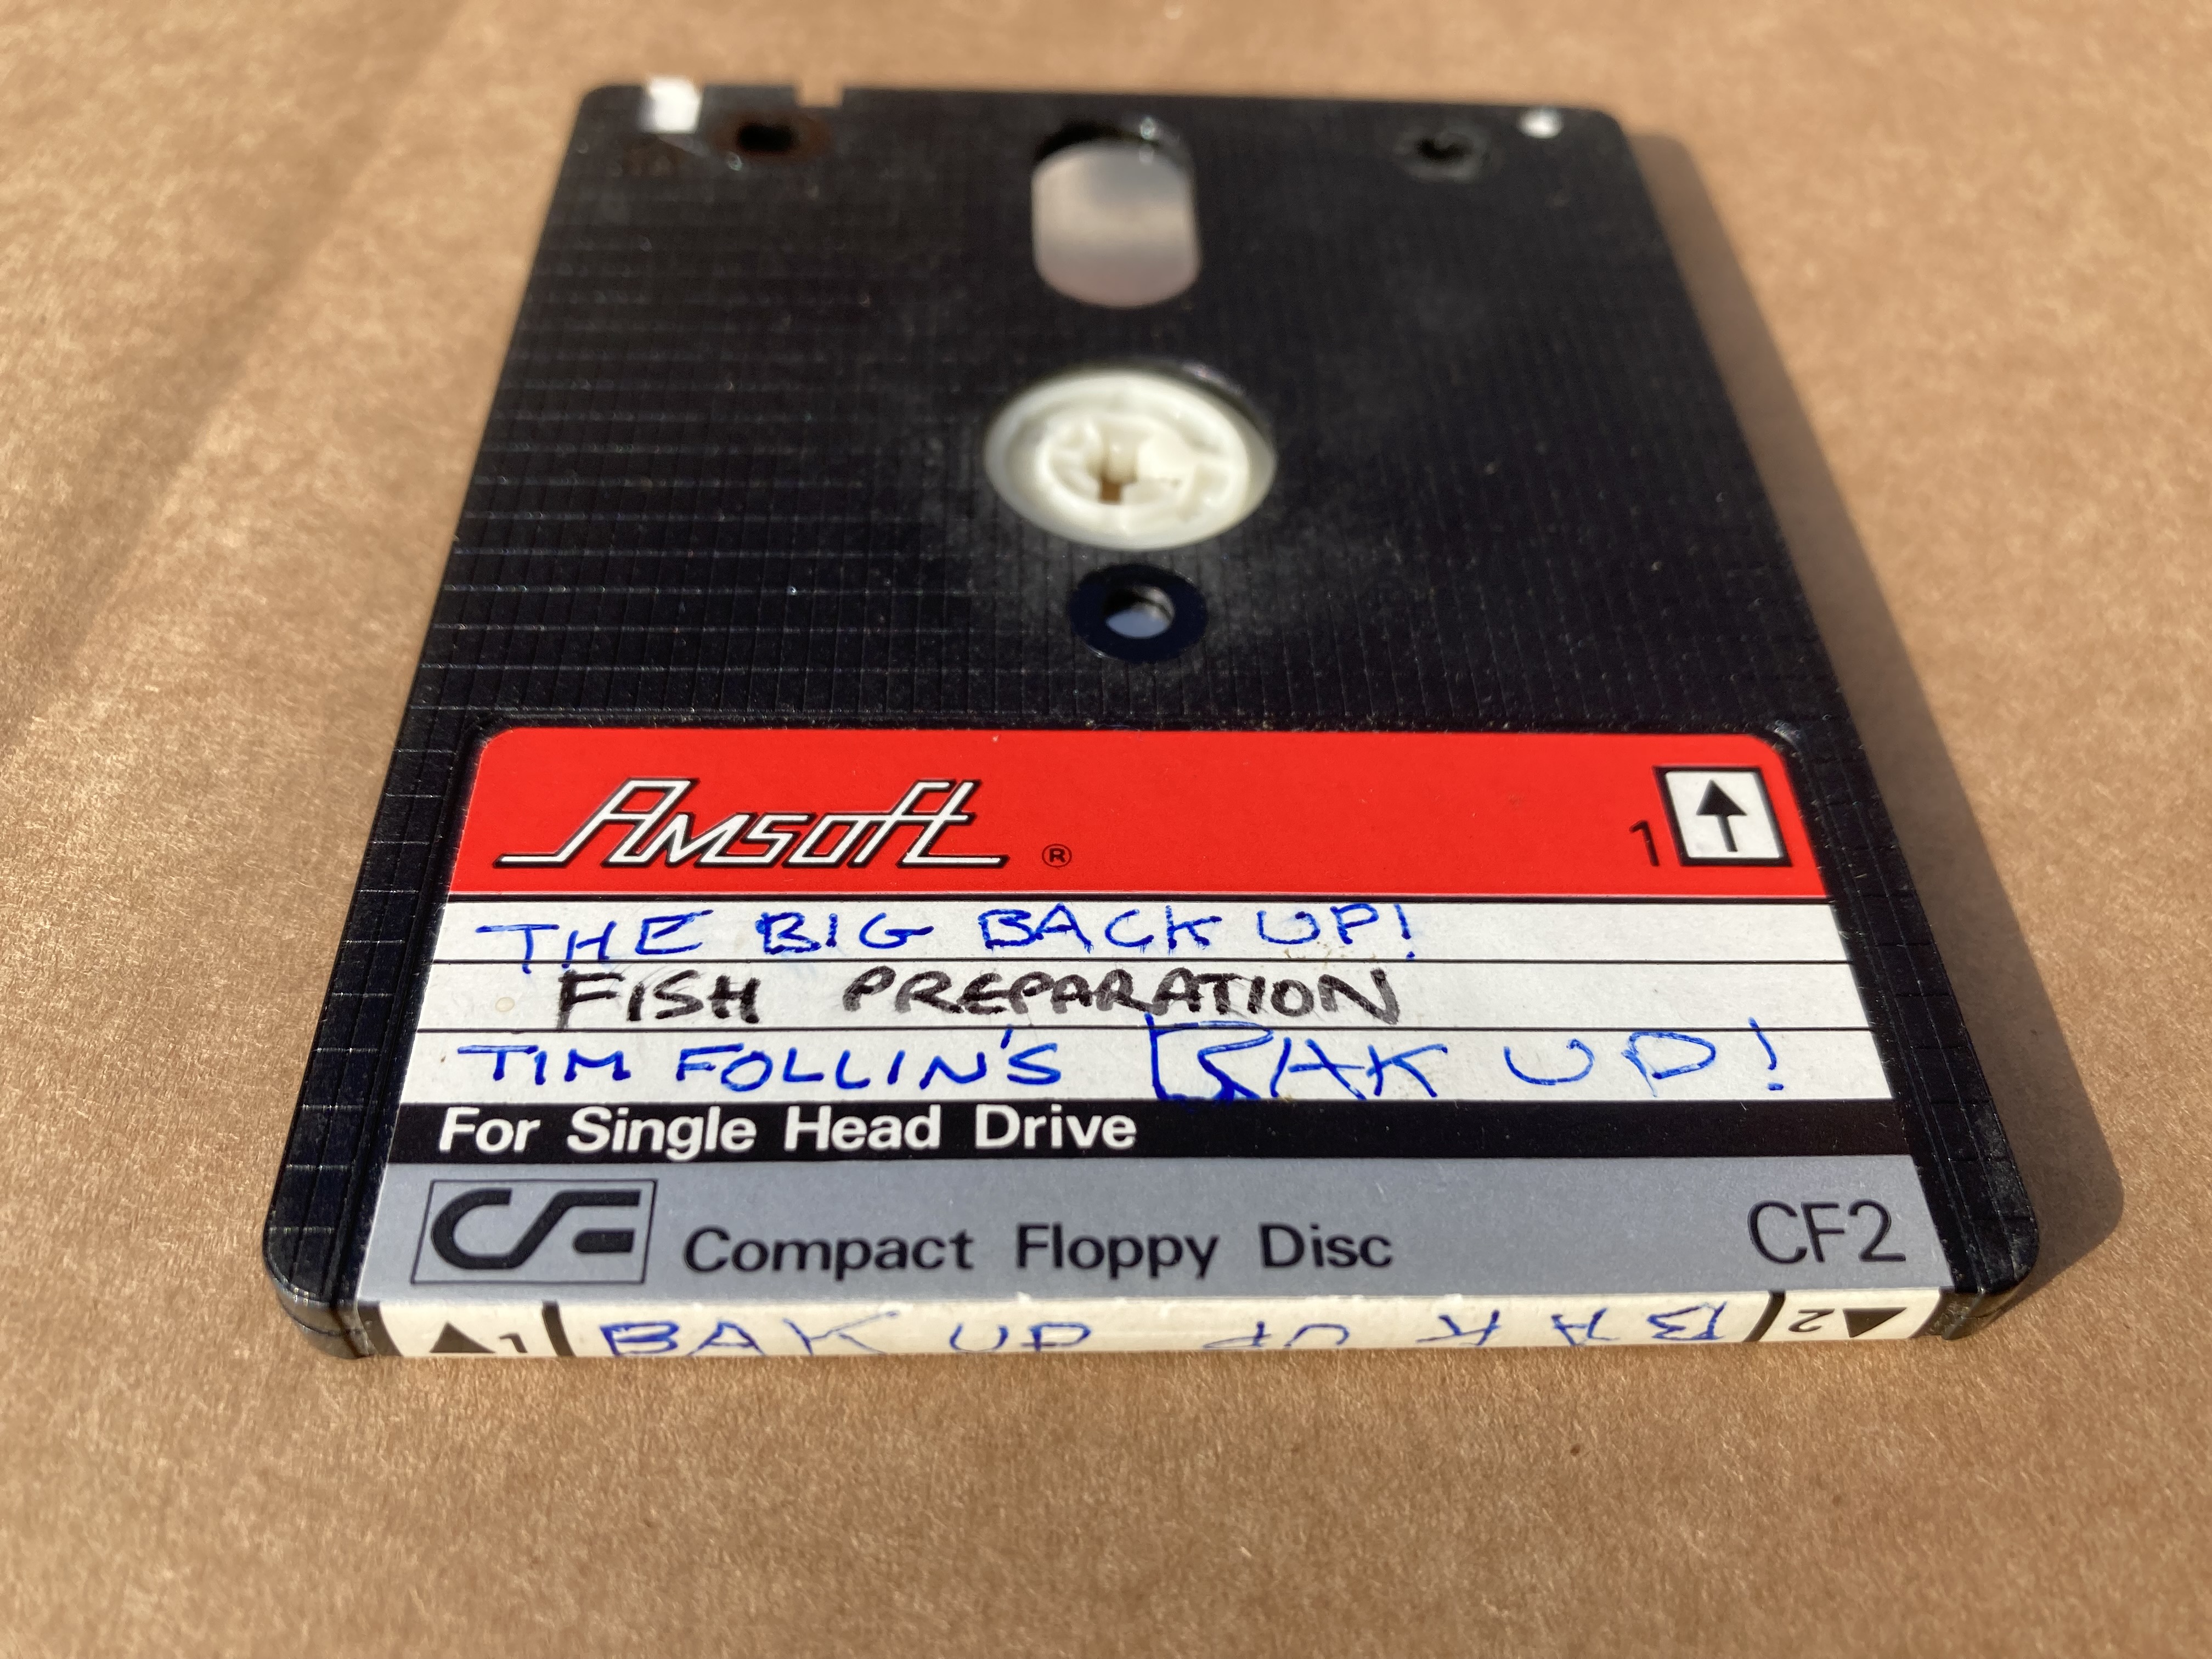 Amsoft ® 1
THE BIG BACK UP!
FISH PREPARATION
TIM FOLLIN'S BAK UP!
For Single Head Drive
CF Compact Floppy Disc CF2
1 BAK UP BAK UP 2